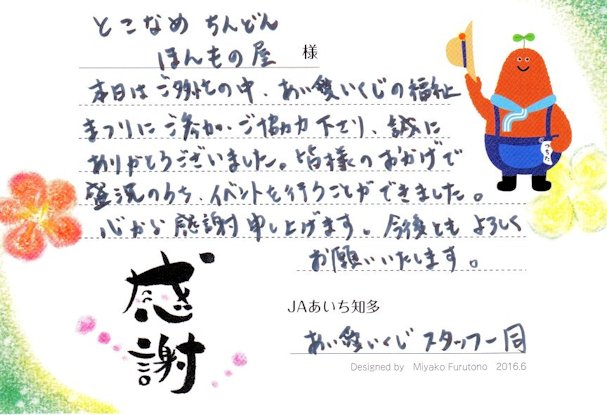 とこなめ ちんどん
ほんもの屋 様
本日はご多忙の中、あい愛いくじの福祉
まつりにご参加・ご協力下さり、誠に
ありがとうございました。皆様のおかげで
盛況のうち、イベントを行うことができました。
心から感謝申し上げます。今後ともよろしく
お願いいたします。
感謝
JAあいち知多
あい愛いくじ スタッフ一同
Designed by Miyako Furutono 2016.6